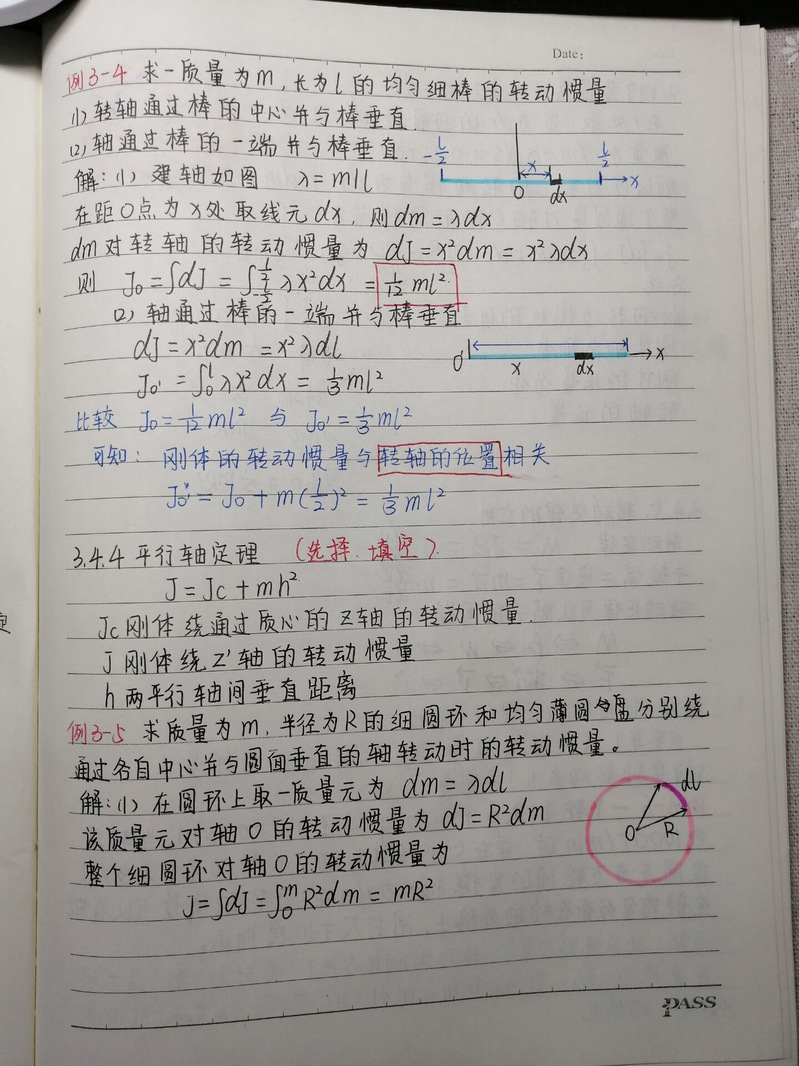 Date:
例3-4 求一质量为m,长为l的均匀细棒的转动惯量
(1)转轴通过棒的中心并与棒垂直.
(2)轴通过棒的一端并与棒垂直.
-l/2 x l/2
O dx x
解:(1)建轴如图 λ=m/l
在距O点为x处取线元dx,则dm=λdx
dm对转轴的转动惯量为 dJ=x²dm=x²λdx
则 J₀=∫dJ=∫_{-l/2}^{l/2}λx²dx=1/12 ml²
(2)轴通过棒的一端并与棒垂直
dJ=x²dm=x²λdl
J₀'=∫₀^l λx²dx=1/3 ml²
O' x dx x
比较 J₀=1/12 ml² 与 J₀'=1/3 ml²
可知: 刚体的转动惯量与转轴的位置相关
J₀*=J₀+m(l/2)²=1/3 ml²
3.4.4 平行轴定理 (选择.填空).
J=Jc+mh²
Jc刚体绕通过质心的Z轴的转动惯量.
J刚体绕Z'轴的转动惯量
h两平行轴间垂直距离
例3-5 求质量为m,半径为R的细圆环和均匀薄圆盘分别绕
通过各自中心并与圆面垂直的轴转动时的转动惯量。
解:(1)在圆环上取一质量元为 dm=λdl
该质量元对轴O的转动惯量为dJ=R²dm
整个细圆环对轴O的转动惯量为
J=∫dJ=∫₀^m R²dm=mR²
dl
O R
PASS